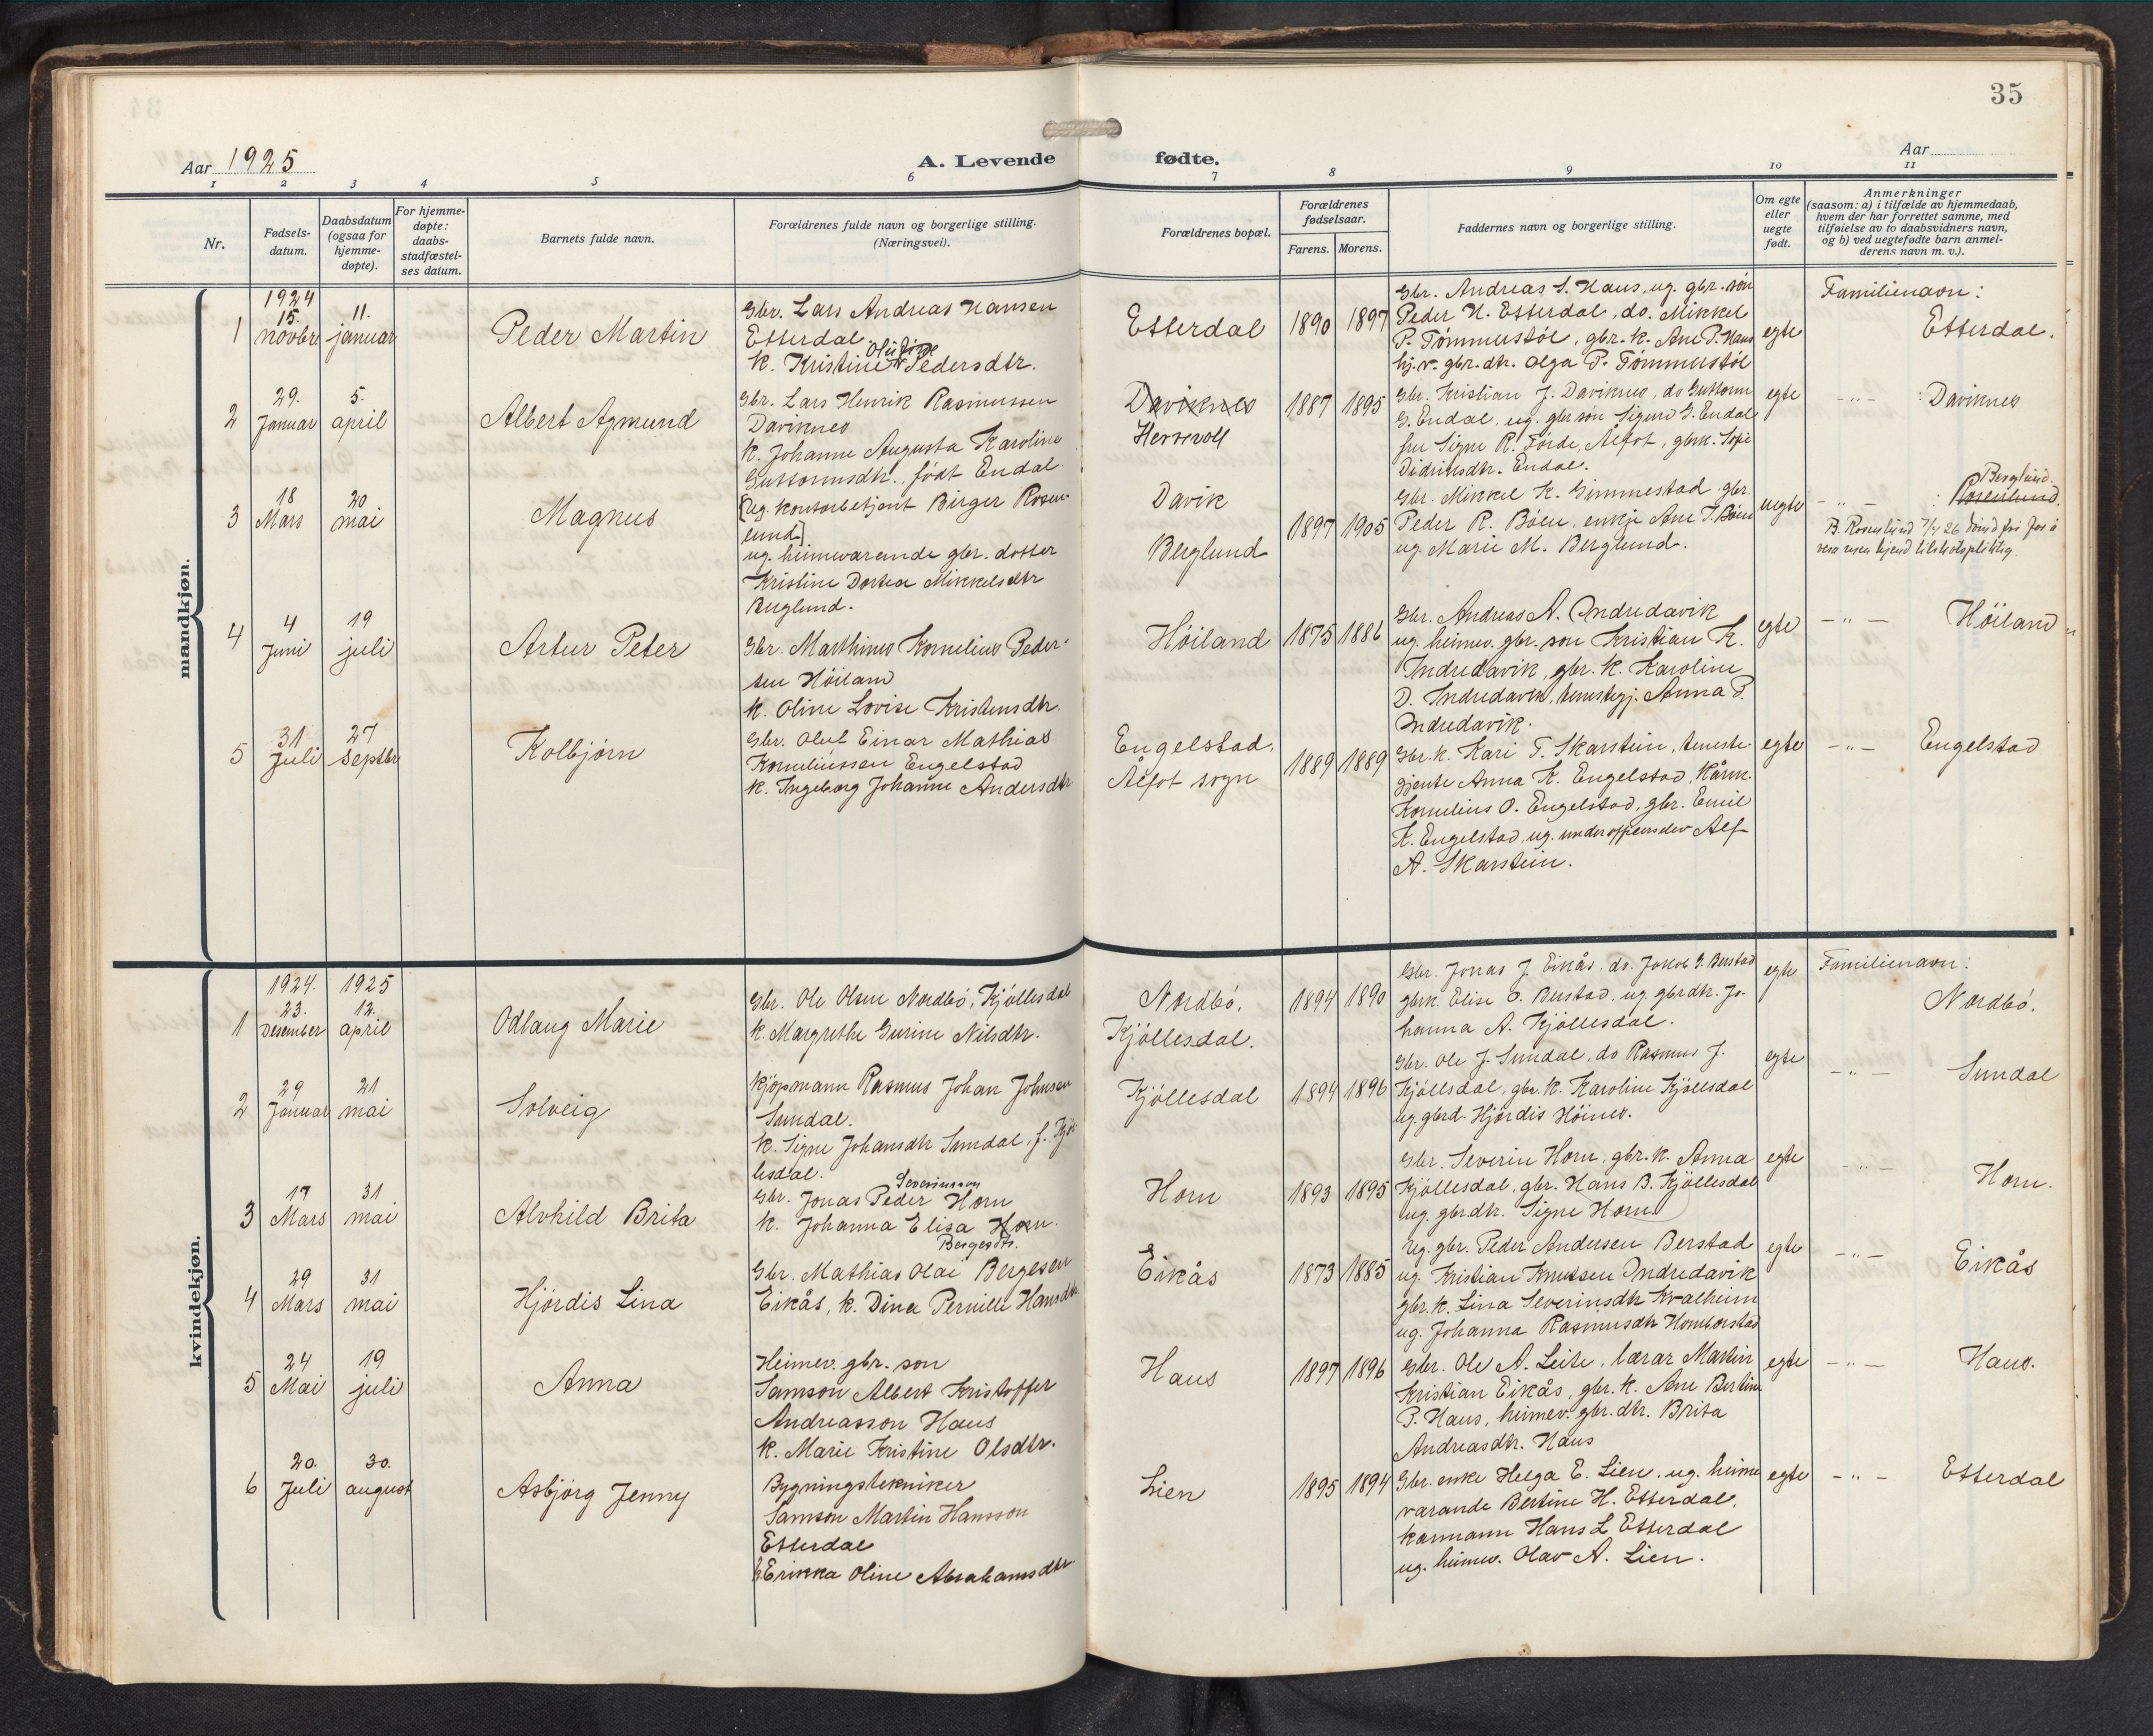 35
Aar 1925
A. Levende fødte.
Aar
1 2 3 4 5 6 7 8 9 10 11
Nr.
Fødsels-
datum.
Daabsdatum
(ogsaa for
hjemme-
døpte).
For hjemme-
døpte:
daabs-
stadfæstel-
ses datum.
Barnets fulde navn.
Forældrenes fulde navn og borgerlige stilling.
(Næringsvei).
Forældrenes bopæl.
Forældrenes
fødselsaar.
Farens. Morens.
Faddernes navn og borgerlige stilling.
Om egte
eller
uegte
født.
Anmerkninger
(saasom: a) i tilfælde av hjemmedaab,
hvem der har forrettet samme, med
tilføielse av to daabsvidners navn,
og b) ved uegtefødte barn anmel-
derens navn m. v.).
mandkjøn.
1
1924
15.
novbr
11.
januar
Peder Martin
Gbr. Lars Andreas Hansen
Etterdal
Olufine
k. Kristine Pedersdtr.
Etterdal
1890 1897
Gbr. Andreas S. Haus, ug. gbr. søn
Peder H. Etterdal, do. Mikkel
P. Tømmerstøl, gbr. k. Ane P. Haus
hj. v. gbr. dtr. Olga P. Tømmerstøl
egte
Familienavn:
Etterdal.
2
29.
Januar
5.
april
Albert Agmund
Gbr. Lars Henrik Rasmussen
Daviknes
k. Johanne Augusta Karoline
Guttormsdtr., født Endal
Daviknes
Hessevoll
1887 1895
Gbr. Kristian J. Daviknes, do Guttorm
G. Endal, ug. gbr søn Sigurd G. Endal
fru Signe R. Førde, Ålfot, gbrk. Sofie
Didriksdtr. Endal.
egte
-"- : Daviknes
3
18
Mars
20
mai
Magnus
[Ug. kontorbetjent Birger Rosen-
lund]
ug. heimeverande gbr. dotter
Kristine Dortea Mikkelsdtr
Berglund.
Davik
Berglund
1897 1905
Gbr. Mikkel K. Gimmestad gbr.
Peder R. Bøen, enkje Ane J. Bøen
ug. Marie M. Berglund.
uegte
-"- :
Berglund.
Rosenlund.
B. Rosenlund 7/4 26 for å
4
4
Juni
19
juli
Artur Peter
Gbr. Marthines Kornelius Peder-
sen Høiland
k. Oline Lovise Kristensdtr.
Høiland
1875 1886
Gbr. Andreas A. Indredavik
ug. heimev. gbr. son Kristian K.
Indredavik, gbr. k. Karoline
D. Indredavik, tenestegj. Anna P.
Indredavik.
egte
-"- Høiland
5
31
Juli
27
Septbr
Kolbjørn
Gbr. Oluf Einar Mathias
Korneliussen Engelstad
k. Ingeborg Johanne Andersdtr
Engelstad,
Ålfot sogn
1889 1889
Gbr. k. Kari T. Skarstein, teneste-
gjente Anna K. Engelstad, kårm.
Kornelius O. Engelstad, gbr. Emil
K. Engelstad, ug. underoffiserselev Alf
A. Skarstein.
egte
-"- Engelstad
kvindekjøn.
1
1924.
23.
Desember
1925
12.
april
Odlaug Marie
Gbr. Ole Olsen Nordbø, Kjøllesdal
k. Margrethe Gurine Nilsdtr.
Nordbø,
Kjøllesdal.
1894 1890
Gbr. Jonas J. Eikås, do. Jakob J. Berstad
gbrk. Elise O. Berstad, ug. gbrdtr. Jo-
hanna A. Kjøllesdal.
egte
Familienavn:
Nordbø.
2
29
Januar
21
mai
Solveig
Kjøpmann Rasmus Johan Johnsen
Sundal.
k. Signe Johansdtr Sundal, f. Kjøl-
lesdal.
Kjøllesdal
1894 1896
Gbr. Ole J. Sundal, do Rasmus J.
Kjøllesdal, gbr. k. Karoline Kjøllesdal
ug. gbrd. Hjørdis Høines.
egte
-"- Sundal
3
17
Mars
31
mai
Alvhild Brita
Severinsson
Gbr. Jonas Peder Horn
k. Johanna Elisa Horn.
Bergesdtr.
Horn
1893 1895
Gbr. Severin Horn, gbr. k. Anna
Kjøllesdal, gbr. Hans B. Kjøllesdal
ug. gbrdtr. Signe Horn
egte
-"- Horn.
4
29
Mars
31
mai
Hjördis Lina
Gbr. Mathias Olai Bergesen
Eikås, k. Dina Pernille Hansdtr
Eikås
1873 1885
Ug. gbr. Peder Andersen Berstad
ug. Kristian Knutsen Indredavik
gbr. k. Lina Severinsdtr Kvalheim
ug. Johanna Rasmusdtr Hombørstad
egte
-"- Eikås
5
24
Mai
19
juli
Anna
Heimev. gbr. son
Samson Albert Kristoffer
Andreasson Haus
k. Marie Kristine Olsdtr.
Haus
1897 1896
Gbr. Ole A. Leite, lærar Martin
Kristian Eikås, gbr. k. Ane Bertine
P. Haus, heimev. gbr. dtr. Brita
Andreasdtr. Haus
egte
-"- Haus.
6
20.
Juli
30.
august
Asbjørg Jenny
Bygningstekniker
Samson Martin Hansson
Etterdal
k. Erikka Oline Abrahamsdtr
Lien
1895 1894
Gbr. enke Helga E. Lien, ug. heime
varande Bertine H. Etterdal,
kårmann Hans L Etterdal
ug. heimev. Olav A. Lien.
egte
-"- Etterdal